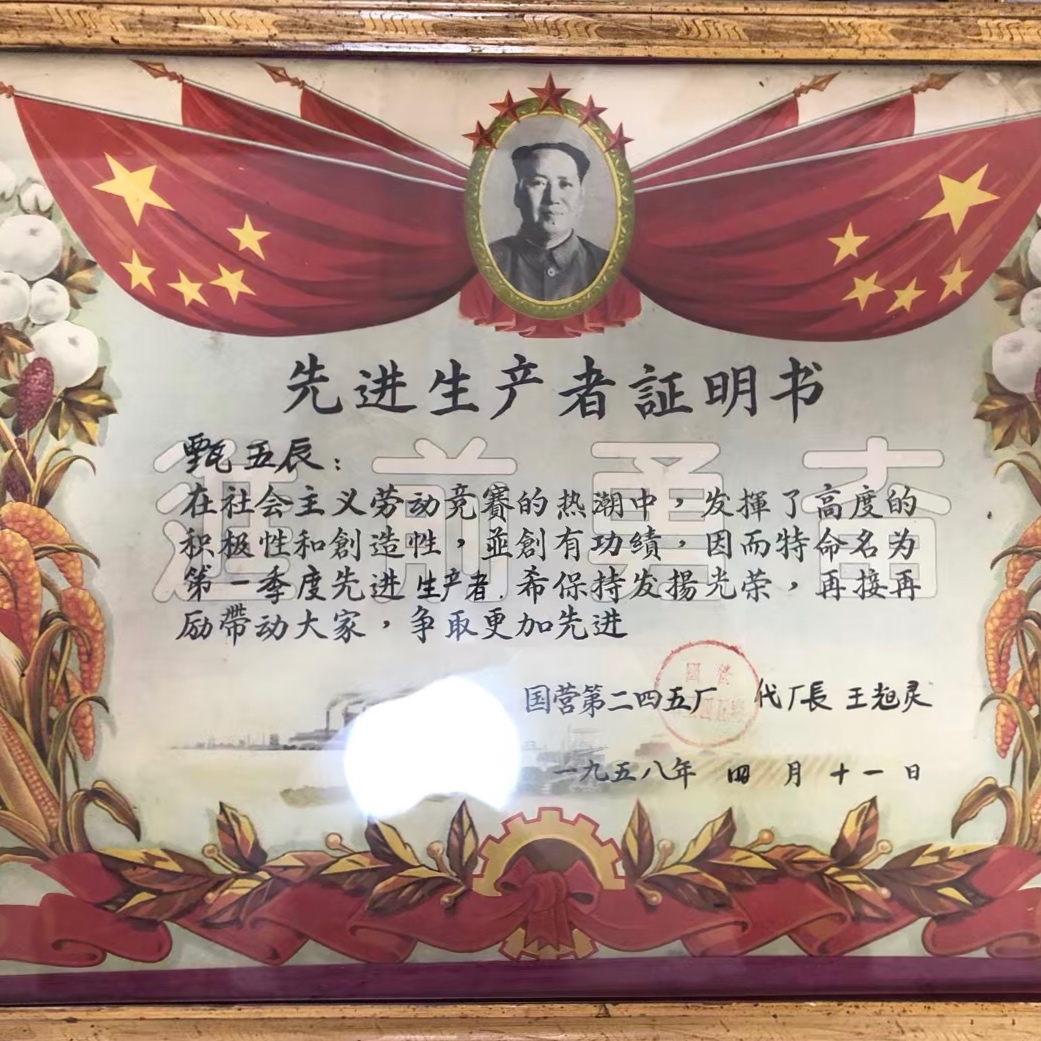 先进生产者証明书
甄五辰：
在社会主义劳动竞赛的热潮中，发揮了高度的
积极性和創造性，並創有功绩，因而特命名为
第一季度先进生产者.希保持发揚光荣，再接再
励带动大家，争取更加先进
奋勇前进
国营第二四五厂 代厂長 王旭灵
國營
一九五八年 四月十一日